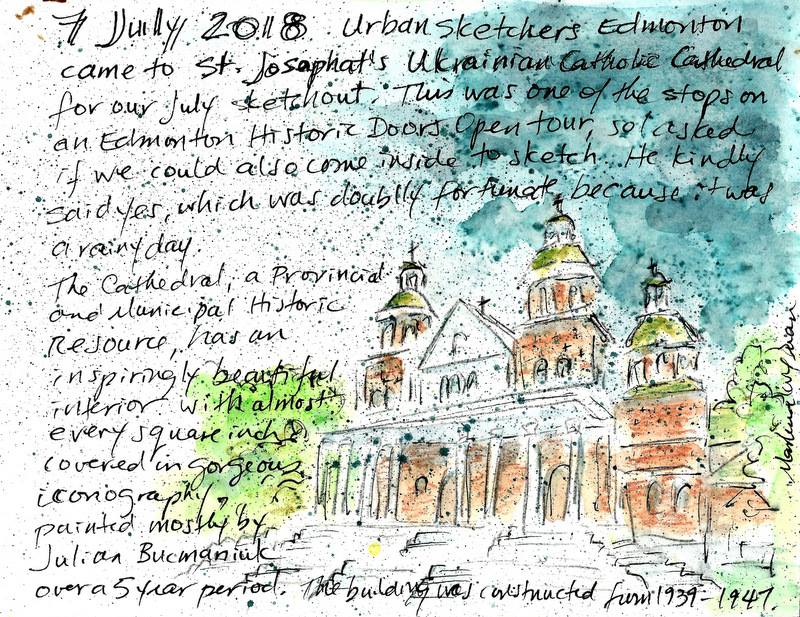 7 July 2018 Urban Sketchers Edmonton
came to St. Josaphat's Ukrainian Catholic Cathedral
for our July sketchout. This was one of the stops on
an Edmonton Historic Doors Open tour, so I asked
if we could also come inside to sketch. He kindly
said yes, which was doublly fortunate because it was
a rainy day.
The Cathedral, a Provincial
and Municipal Historic
Resource, has an
inspiringly beautiful
interior with almost
every square inch
covered in gorgeous
iconography,
painted mostly by
Julian Bucmaniuk
over a 5 year period. The building was constructed from 1939-1947.